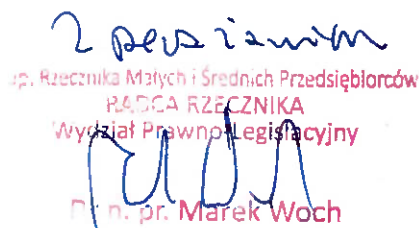 Z poważaniem
up. Rzecznika Małych i Średnich Przedsiębiorców
RADCA RZECZNIKA
Wydział Prawno-Legislacyjny
D n. pr. Marek Woch